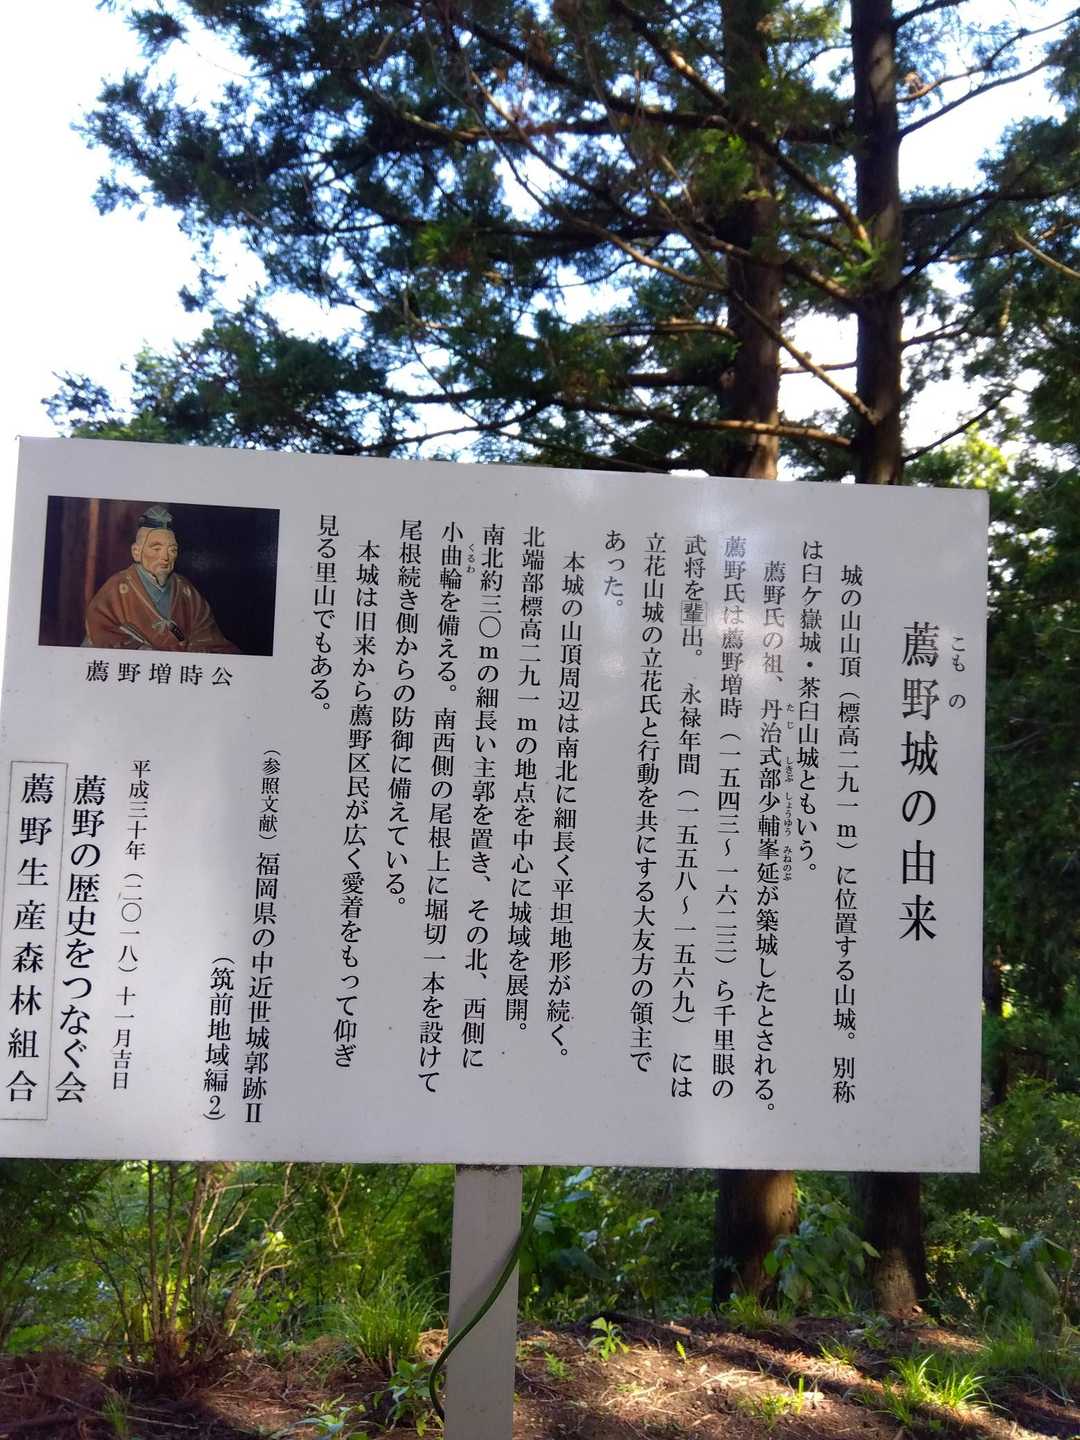 薦野城の由来
こもの
城の山山頂（標高二九一ｍ）に位置する山城。別称
は臼ケ嶽城・茶臼山城ともいう。
薦野氏の祖、丹治式部少輔峯延が築城したとされる。
たじ しきぶ しょうゆう みねのぶ
薦野氏は薦野増時（一五四三～一六二三）ら千里眼の
武将を輩出。永禄年間（一五五八～一五六九）には
立花山城の立花氏と行動を共にする大友方の領主で
あった。
本城の山頂周辺は南北に細長く平坦地形が続く。
北端部標高二九一ｍの地点を中心に城域を展開。
南北約三〇ｍの細長い主郭を置き、その北、西側に
小曲輪を備える。南西側の尾根上に堀切一本を設けて
くるわ
尾根続き側からの防御に備えている。
本城は旧来から薦野区民が広く愛着をもって仰ぎ
見る里山でもある。
（参照文献）福岡県の中近世城郭跡Ⅱ
（筑前地域編２）
平成三十年（二〇一八）十一月吉日
薦野の歴史をつなぐ会
薦野生産森林組合
薦野増時公